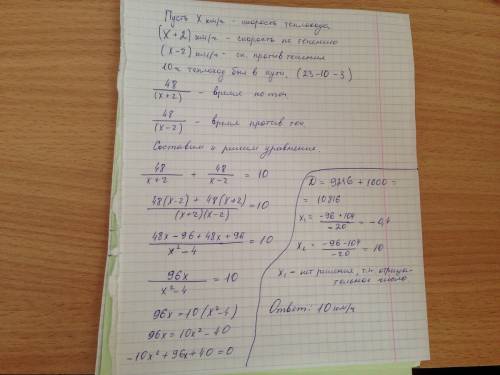 Пусть X км/ч - скорость теплохода
(X+2) км/ч - скорость по течению
(X-2) км/ч - ск. против течения
10ч теплоход был в пути. (23-10-3)
48/(x+2) - время по теч
48/(x-2) - время против теч.
Составим и решим уравнение.
48/(x+2) + 48/(x-2) = 10
(48(x-2) + 48(x+2))/((x+2)(x-2)) = 10
(48x - 96 + 48x + 96)/(x²-4) = 10
96x/(x²-4) = 10
96x = 10(x²-4)
96x = 10x² - 40
-10x² + 96x + 40 = 0
D = 9216 + 1600 =
= 10816
x₁ = (-96+104)/(-20) = -0,4
x₂ = (-96-104)/(-20) = 10
x₁ - нет решения, т.к. отрица-
тельное число
Ответ: 10 км/ч